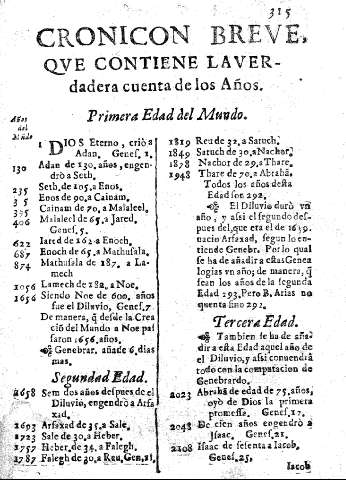 315
CRONICON BREVE,
QVE CONTIENE LA VER-
dadera cuenta de los Años.
Primera Edad del Mundo.
Años
del
Mũdo
1 DIOS Eterno, criò a
Adan. Genes. 1.
130 Adan de 130. años, engen-
drò a Seth.
235 Seth. de 105. a Enos.
3 5 Enos de 90. a Cainan.
395 Cainam de 70. a Malaleel.
406 Malaleel de 65. a Jared.
Genes. 5.
622 Iared de 162. a Enoch.
687 Enoch de 65. a Mathusala.
874 Mathusala de 187. a La-
mech
1056 Lamech de 182. a Noe.
1656 Siendo Noe de 600. años
fue el Diluvio, Genes. 7.
De manera, q̃ desde la Crea-
ciõ del Mundo a Noe pas-
saron 1656. años.
Genebrar. añade 6. dias
mas.
Segunda Edad.
1658 Sem dos años despues de el
Diluvio, engendrò a Arfa-
xad.
1693 Arfaxad de 35. a Sale.
1723 Sale de 30. a Heber.
1757 Heber de 34. a Falegh.
1787 Falegh de 30. a Reu. Gen. 21.
1819 Reu de 32. a Saruch.
1849 Saruch de 30. a Nachor.
1878 Nachor de 29. a Thare.
1948 Thare de 70. a Abrahã.
Todos los años desta
Edad son 292.
El Diluvio durò vn
año, y assi el segundo des-
pues del, que era el de 1659.
nacio Arfaxad, segun lo en-
tiende Genebr. Por lo qual
se ha de añadir a estas Genea
logias vn año; de manera, q̃
sean los años de la segunda
Edad 293. Pero B. Arias no
quenta sino 292.
Tercera Edad.
Tambien se ha de aña-
dir a esta Edad aquel año de
el Diluvio, y assi convendrà
todo con la computacion de
Genebrardo.
2023 Abrahã de edad de 75. años,
oyò de Dios la primera
promessa. Genes. 17.
2048 De cien años engendrò a
Jsaac. Genes. 21.
2108 Isaac de sesenta a Iacob.
Genes. 25.
Iacob